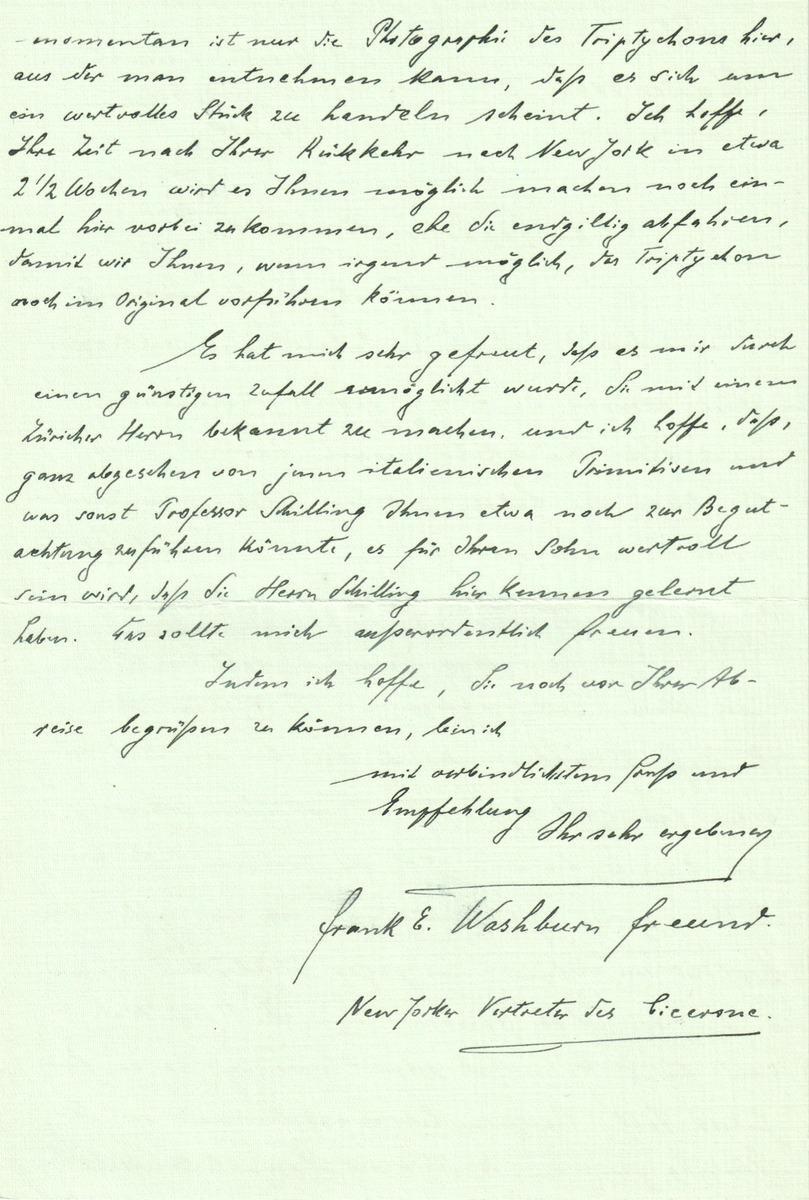 momentan ist nur die Photographie des Triptychons hier,
aus der man entnehmen kann, daß es sich um
ein wertvolles Stück zu handeln scheint. Ich hoffe,
Ihre Zeit nach Ihrer Rükkehr nach New York in etwa
2 1/2 Wochen wird es Ihnen möglich machen noch ein-
mal hier vorbei zu kommen, ehe Sie endgiltig abfahren,
damit wir Ihnen, wenn irgend möglich, das Triptychon
noch im Original vorführen können.
Es hat mich sehr gefreut, daß es mir durch
einen günstigen Zufall ermöglicht wurde, Sie mit einem
Züricher Herrn bekannt zu machen, und ich hoffe, daß,
ganz abgesehen von jenen italienischen Primitiven und
was sonst Professor Schilling Ihnen etwa noch zur Begut-
achtung zuführen könnte, es für Ihren Sohn wertvoll
sein wird, daß Sie Herrn Schilling hier kennen gelernt
haben. Das sollte mich außerordentlich freuen.
Indem ich hoffe, Sie noch vor Ihrer Ab-
reise begrüßen zu können, bin ich
mit verbindlichstem Gruß und
Empfehlung
Ihr sehr ergebener
Frank E. Washburn Freund.
New Yorker Vertreter des Cicerone.